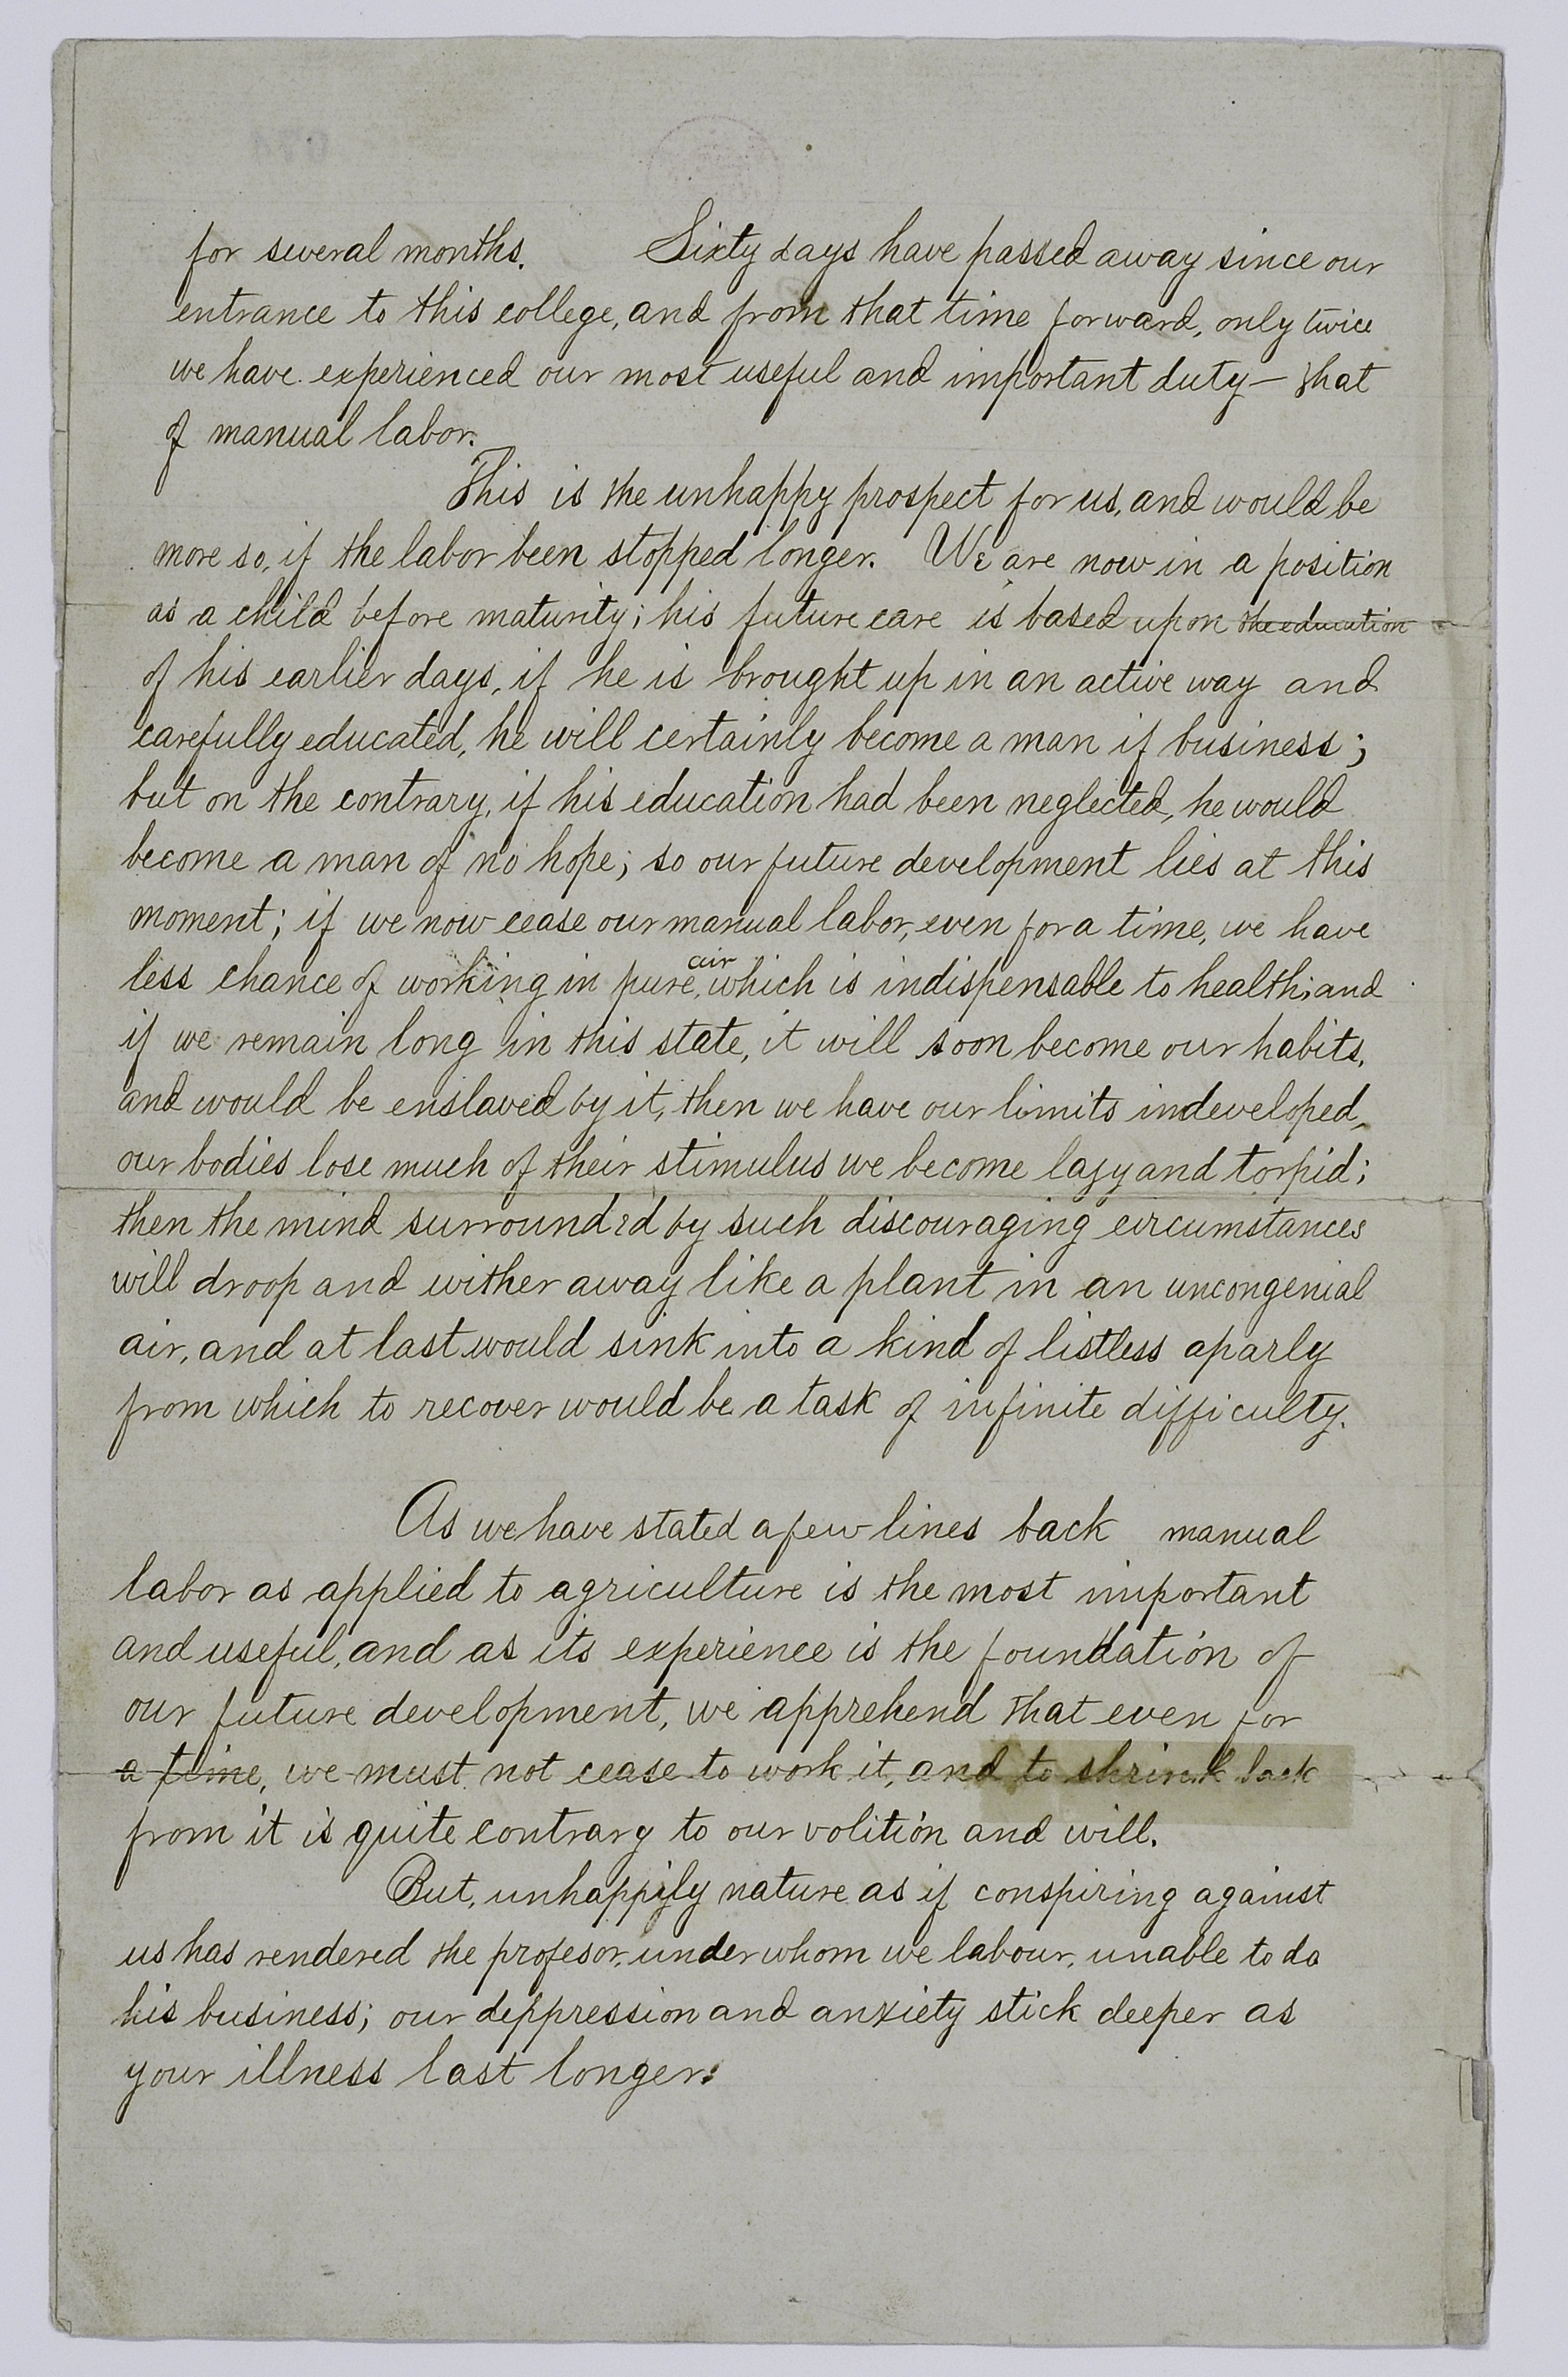 for several months. Sixty days have passed away since our
entrance to this college, and from that time forward, only twice
we have experienced our most useful and important duty — that
of manual labor.
This is the unhappy prospect for us, and would be
more so, if the labor been stopped longer. We are now in a position
as a child before maturity; his future care is based upon the education
of his earlier days, if he is brought up in an active way and
carefully educated, he will certainly become a man if business;
but on the contrary, if his education had been neglected, he would
become a man of no hope; so our future development lies at this
moment; if we now cease our manual labor, even for a time, we have
less chance of working in pure air, which is indispensable to health; and
if we remain long in this state, it will soon become our habits,
and would be enslaved by it, then we have our limits indeveloped,
our bodies lose much of their stimulus we become lazy and torpid;
then the mind surrounded by such discouraging circumstances
will droop and wither away like a plant in an uncongenial
air, and at last would sink into a kind of listless aparly
from which to recover would be a task of infinite difficulty.
As we have stated a few lines back manual
labor as applied to agriculture is the most important
and useful, and as its experience is the foundation of
our future development, we apprehend that even for
a time, we must not cease to work it, and to shrink back
from it is quite contrary to our volition and will.
But, unhappily nature as if conspiring against
us has rendered the profesor, under whom we labour, unable to do
his business; our deppression and anxiety stick deeper as
your illness last longer.